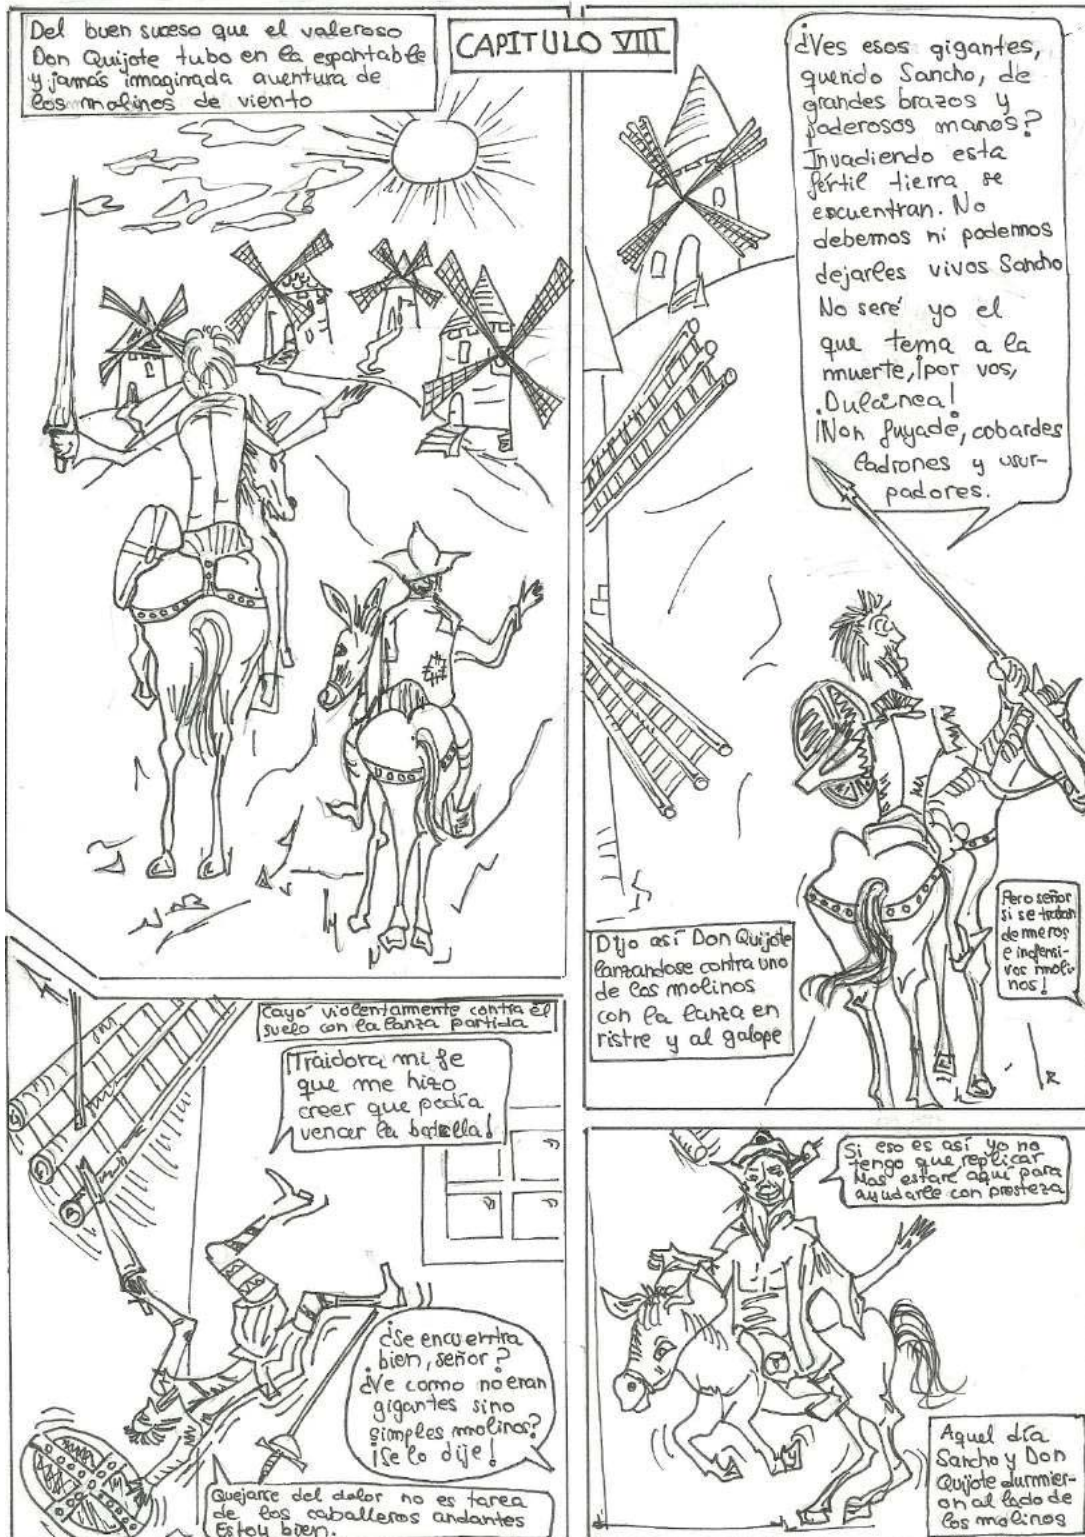 Del buen suceso que el valeroso
Don Quijote tubo en la espantable
y jamás imaginada aventura de
los molinos de viento
CAPITULO VIII
¿Ves esos gigantes,
querido Sancho, de
grandes brazos y
poderosos manos?
Invadiendo esta
fértil tierra se
encuentran. No
debemos ni podemos
dejarles vivos Sancho
No seré yo el
que tema a la
muerte, ¡por vos,
Dulcinea!
¡Non fuyade, cobardes
ladrones y usur-
padores.
Pero señor
si se tratan
de meros
e inofensi-
vos moli-
nos!
Dijo así Don Quijote
lanzandose contra uno
de los molinos
con la lanza en
ristre y al galope
Cayó violentamente contra el
suelo con la lanza partida
¡Traidora mi fe
que me hizo
creer que podía
vencer la batalla!
¿Se encuentra
bien, señor?
¿Ve como no eran
gigantes sino
simples molinos?
¡Se lo dije!
Quejarse del dolor no es tarea
de los caballeros andantes
Estoy bien.
Si eso es así yo no
tengo que replicar
Mas estaré aquí para
ayudarle con presteza
Aquel día
Sancho y Don
Quijote durmier-
on al lado de
los molinos